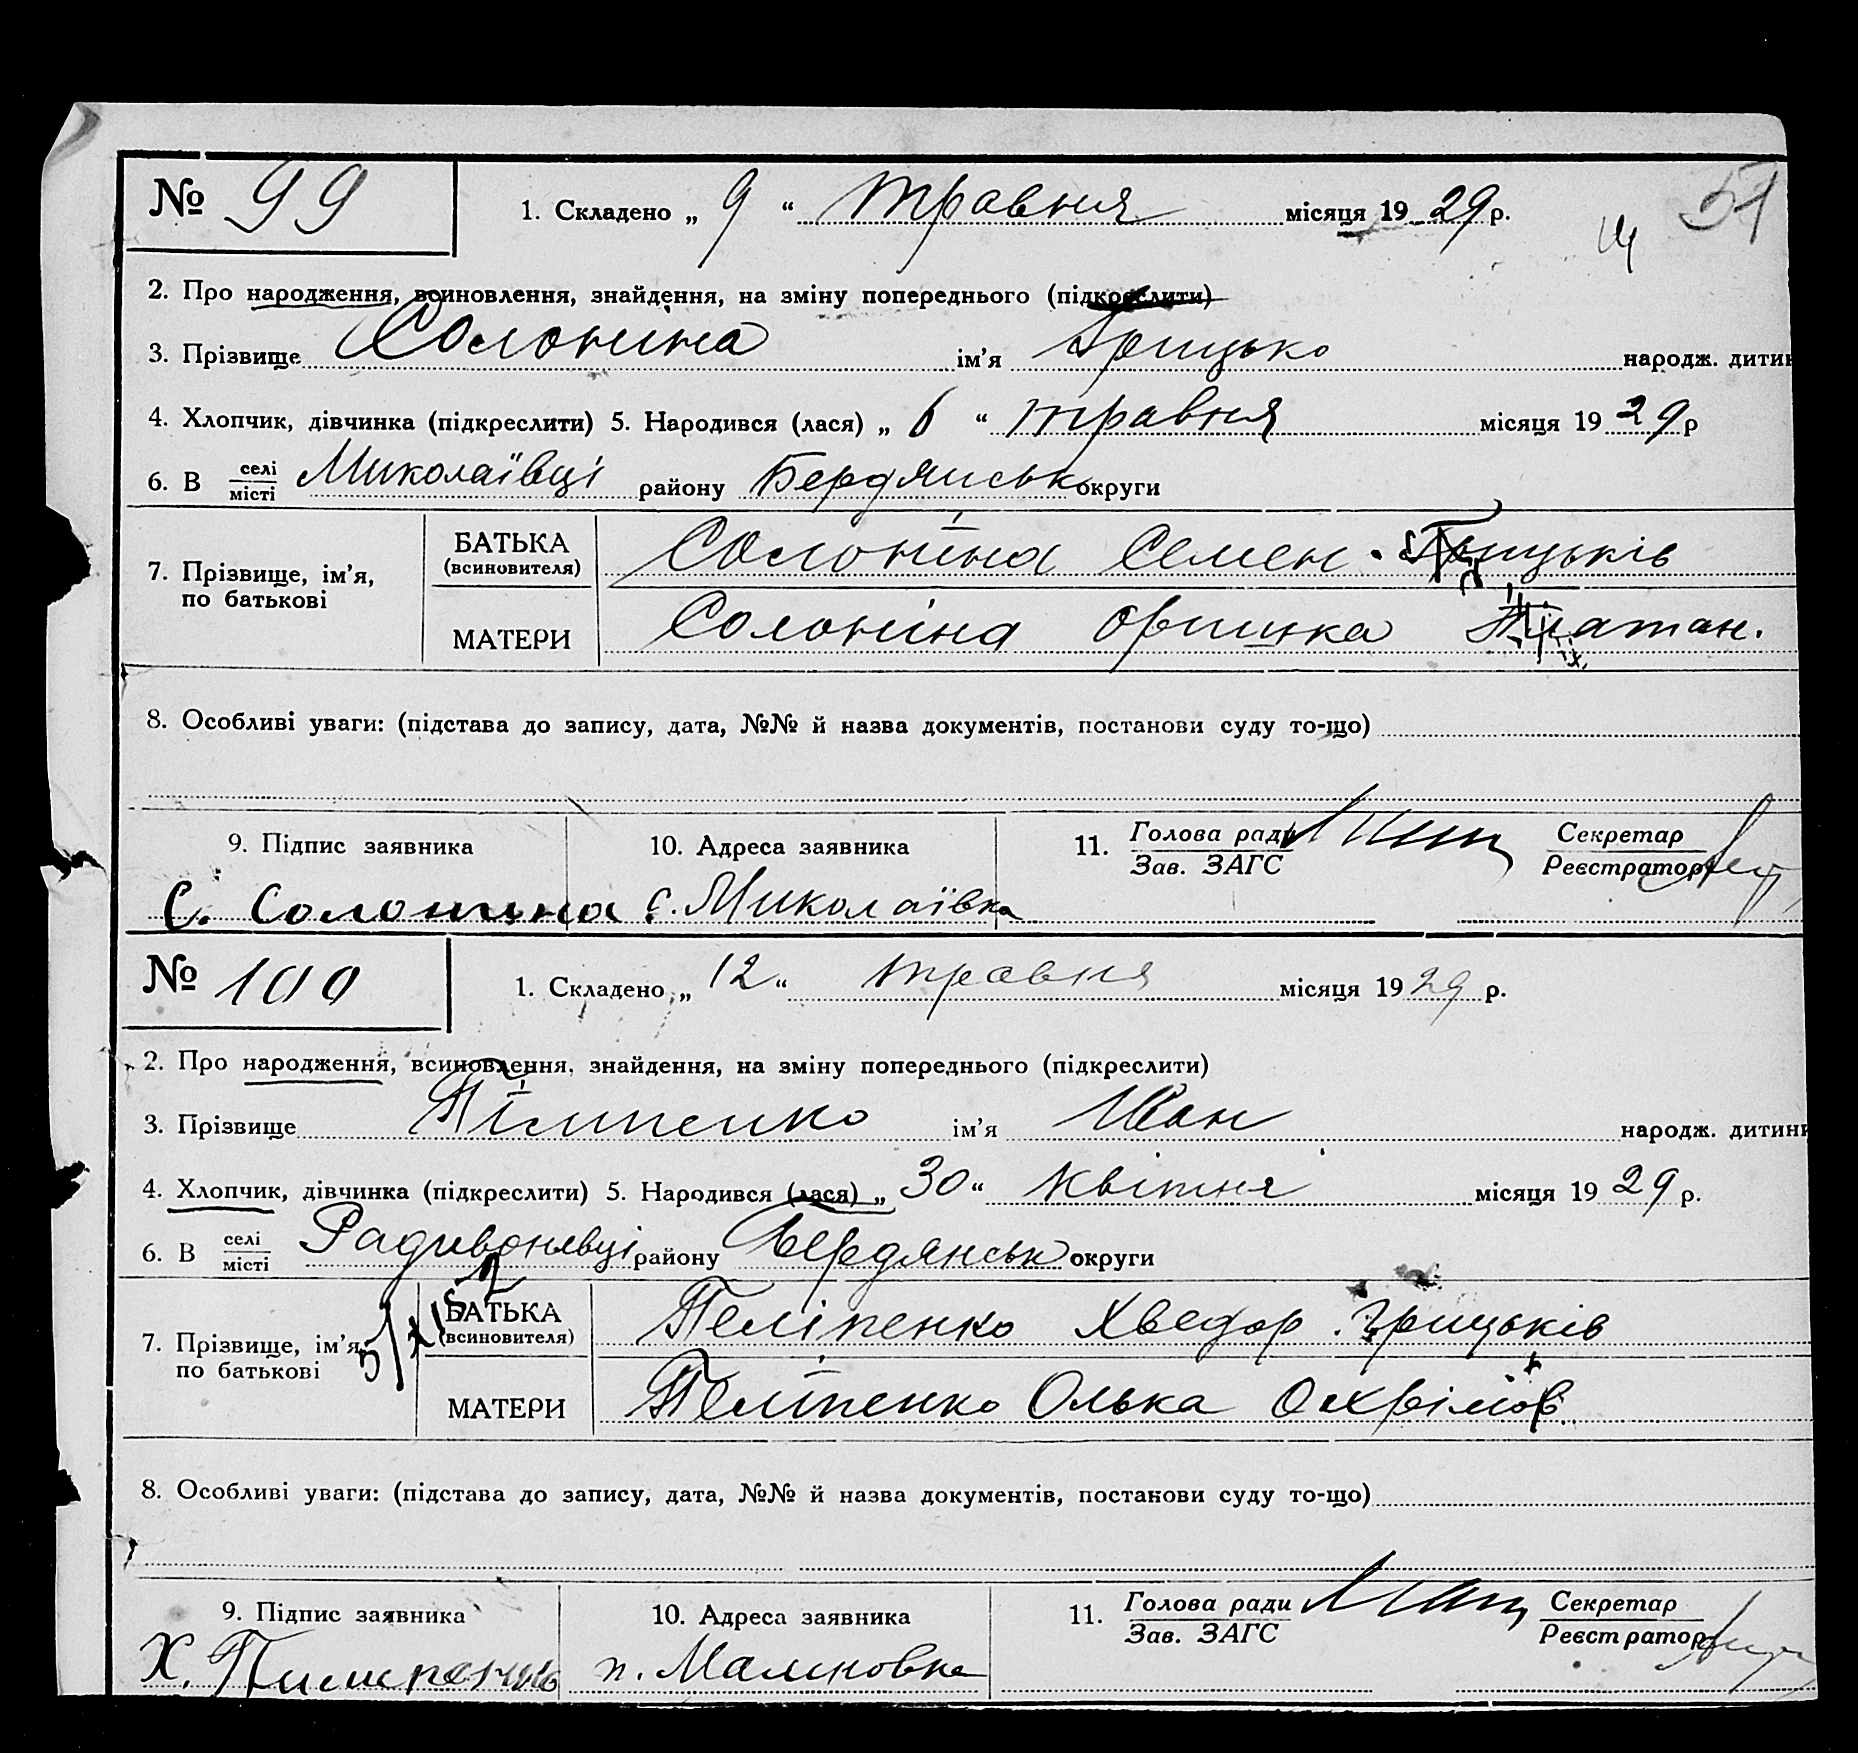 № 99
1. Складено „ 9 “ травня місяця 19 29 р.
51
2. Про народження, всиновлення, знайдення, на зміну попереднього (підкреслити)
3. Прізвище Солонина ім’я Грицько народж. дитин
4. Хлопчик, дівчинка (підкреслити) 5. Народився (лася) „ 6 “ травня місяця 19 29 р
6. В селі місті Миколаївці району Бердянськ округи
7. Прізвище, ім’я, по батькові
БАТЬКА (всиновителя) Солонїна Семен Грицьків
МАТЕРИ Солоніна Оришка Платон.
8. Особливі уваги: (підстава до запису, дата, №№ й назва документів, постанови суду то-що)
9. Підпис заявника 10. Адреса заявника 11. Голова ради Зав. ЗАГС Секретар Реєстратор
С. Солонина с. Миколаївка
№ 100
1. Складено „ 12 “ травня місяця 19 29 р.
2. Про народження, всиновлення, знайдення, на зміну попереднього (підкреслити)
3. Прізвище Пілипенко ім’я Иван народж. дитини
4. Хлопчик, дівчинка (підкреслити) 5. Народився (лася) „ 30 “ квітня місяця 19 29 р.
6. В селі місті Радивонівці району Бердянськ округи
7. Прізвище, ім’я, по батькові
БАТЬКА (всиновителя) Пеліпенко Хведор Грицьків
МАТЕРИ Пеліпенко Олька Охрімов.
8. Особливі уваги: (підстава до запису, дата, №№ й назва документів, постанови суду то-що)
9. Підпис заявника 10. Адреса заявника 11. Голова ради Зав. ЗАГС Секретар Реєстратор
Х. Пилипенко п. Малиновка